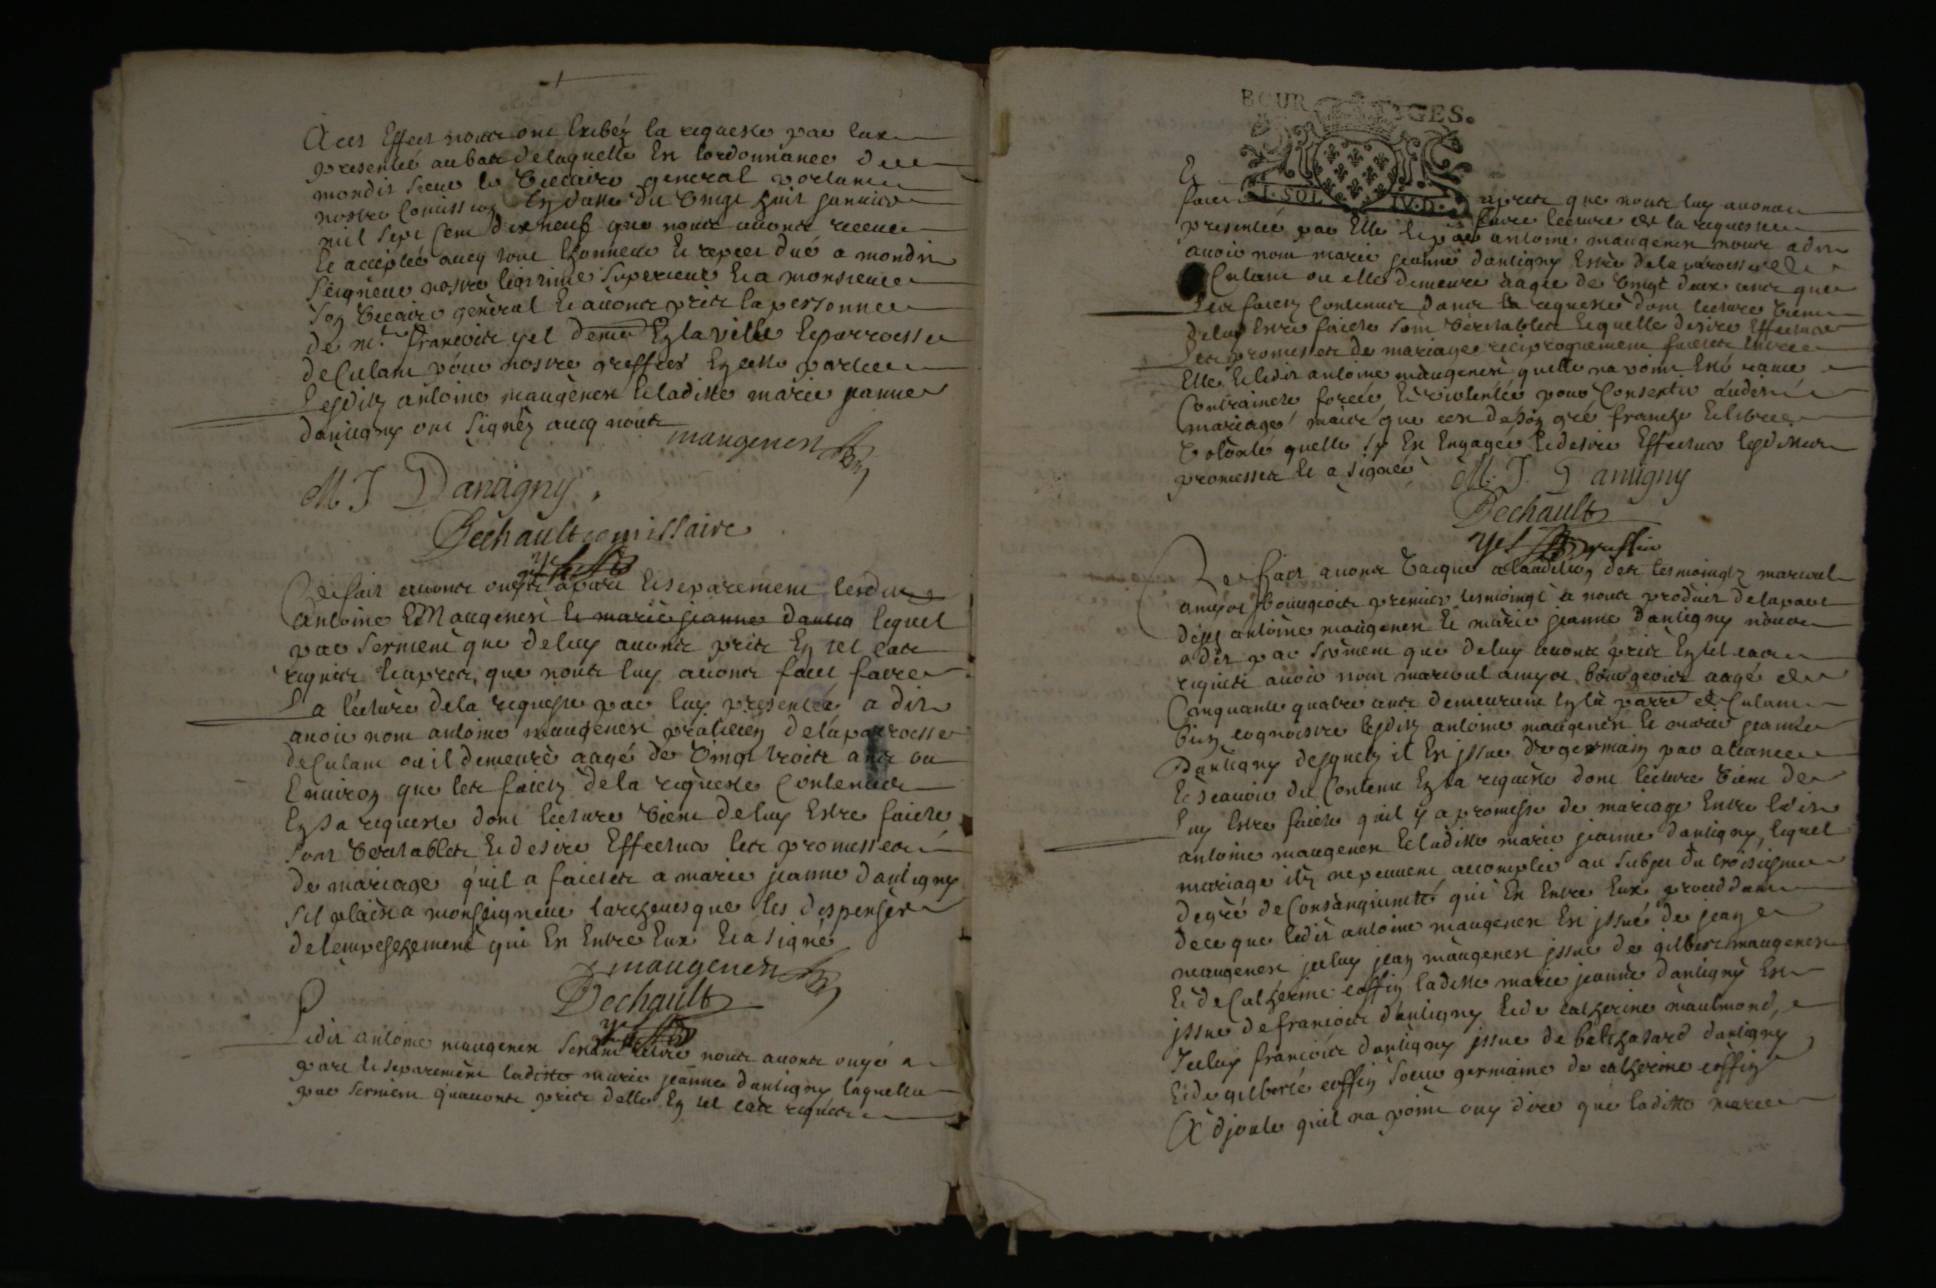 A ces Effect nous ont Exibez la requeste par Eux
presentée au bas de laquelle Est lordonnance de
mondit sieur le Viccaire general portant
nostre Comission En datte du Vingt huit janvier
mil sept Cent dix neuf que nous avons receue
Et acceptée avecq tout lhonneur Et respect dué a mondit
Seigneur nostre legitime Superieur Et a monsieur
son Viccaire général Et avons pris la personne
de mr. François yel demt En la ville Et parroisse
de Culant pour nostre greffier En cette partie
Lesditz antoine maugenest Et laditte marie jeanne
dantigny ont Signéz avecq nous
maugenest
M J Dantigny
Dechault comissaire
yel
Ce fait avons ouy a part Et separement
antoine Maugenest et marie jeanne dantig lequel
par serment que de luy avons pris En tel cas
requis Et apres que nous luy avons fait faire
La lécture de la requeste par luy presentée a dit
avoir nom antoine maugenest praticien de la parroisse
de Culant ou il demeure aagé de Vingt trois ans ou
Environ que les faictz de la requeste Contenus
En sa requeste dont lecture Vient de luy Estre faicte
sont Veritables Et desire Effectuer les promesses
de mariage quil a faictes a marie jeanne dantigny
sil plaist a monseigneur larchevesque les dispenser
de lempeschement qui Est Entre Eux Et a signé
maugenest
Dechault
yel
Ledit antoine maugenest nous avons ouyé a
part Et separement laditte marie jeanne dantigny laquelle
par serment quavons pris delle En tel cas requis
BOURGES.
Et
faire apres que nous luy avons
faire lecture de la requeste
presentée par Elle Et par antoine maugenest nous a dit
avoir nom marie jeanne dantigny Estre de la paroisse de
Culant ou elle demeure aagée de Vingt deux ans que
Les faictz Contenus dans la requeste dont lecture Vient
de luy Estre faicte sont Véritables Et quelle desire Effectuer
Les promesses de mariage reciproquement faictes Entre
Elle Et ledit antoine maugenest quelle na point Esté
Contrainte forcée Et violentée pour Consentir audit
mariage mais que cest de son gré franche Et libre
Volonté quelle sy Est Engagée Et desire Effectuer lesdittes
promesses Et a signée
M. J. Dantigny
Dechault
yel greffier
Ce fait avons Vacqué a laudition des tesmoingtz martial
amyot bourgeois premier tesmoingt a nous produit de la part
desd antoine maugenest Et marie jeanne dantigny nous
a dit par serment que de luy avons pris En tel cas
requis avoir nom martial amyot bourgeois aagé de
Cinquante quatre ans demeurant En la parre de Culant
bien cognoistre lesditz antoine maugenest Et marie jeanne
Dantigny desquelz il Est issue de germain par aliance
Et scavoir du Contenu En la requeste dont lecture Vient de
luy Estre faicte quil y a promesse de mariage Entre ledit
antoine maugenest Et laditte marie jeanne dantigny, lequel
mariage ilz ne peuvent accomplir au subjet du troisiesme
degré de Consanguinité qui Est Entre Eux procedant
de ce que ledit antoine maugenest Est issué de jean
maugenest iceluy jean maugenest issue de gilbert maugenest
Et de Catherine coffin laditte marie jeanne dantigny Est
issue de francois dantigny Et de catherine maulmond,
Iceluy francois dantigny issue de balthasard dantigny
Et de gilberte coffin soeur germaine de catherine coffin
Adjoute quil na point ouy dire que laditte marie